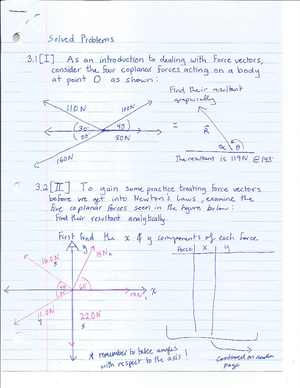 Solved Problems
3.1 [I] As an introduction to dealing with Force vectors,
consider the four coplanar forces acting on a body
at point O as shown:
Find their resultant
graphically.
110N
100N
30°
45°
20°
80N
160N
=
R
α
θ
The resultant is 119N @ 143°
3.2 [II] To gain some practice treating force vectors
before we get into Newton's Laws, examine the
five coplanar forces seen in the figure below:
Find their resultant analytically.
First find the x & y components of each force
Force
x
y
y
16.0N
15N
60°
x
19N
11.0N
22.0N
* remember to take angles
with respect to the axis!
Continued on another
page